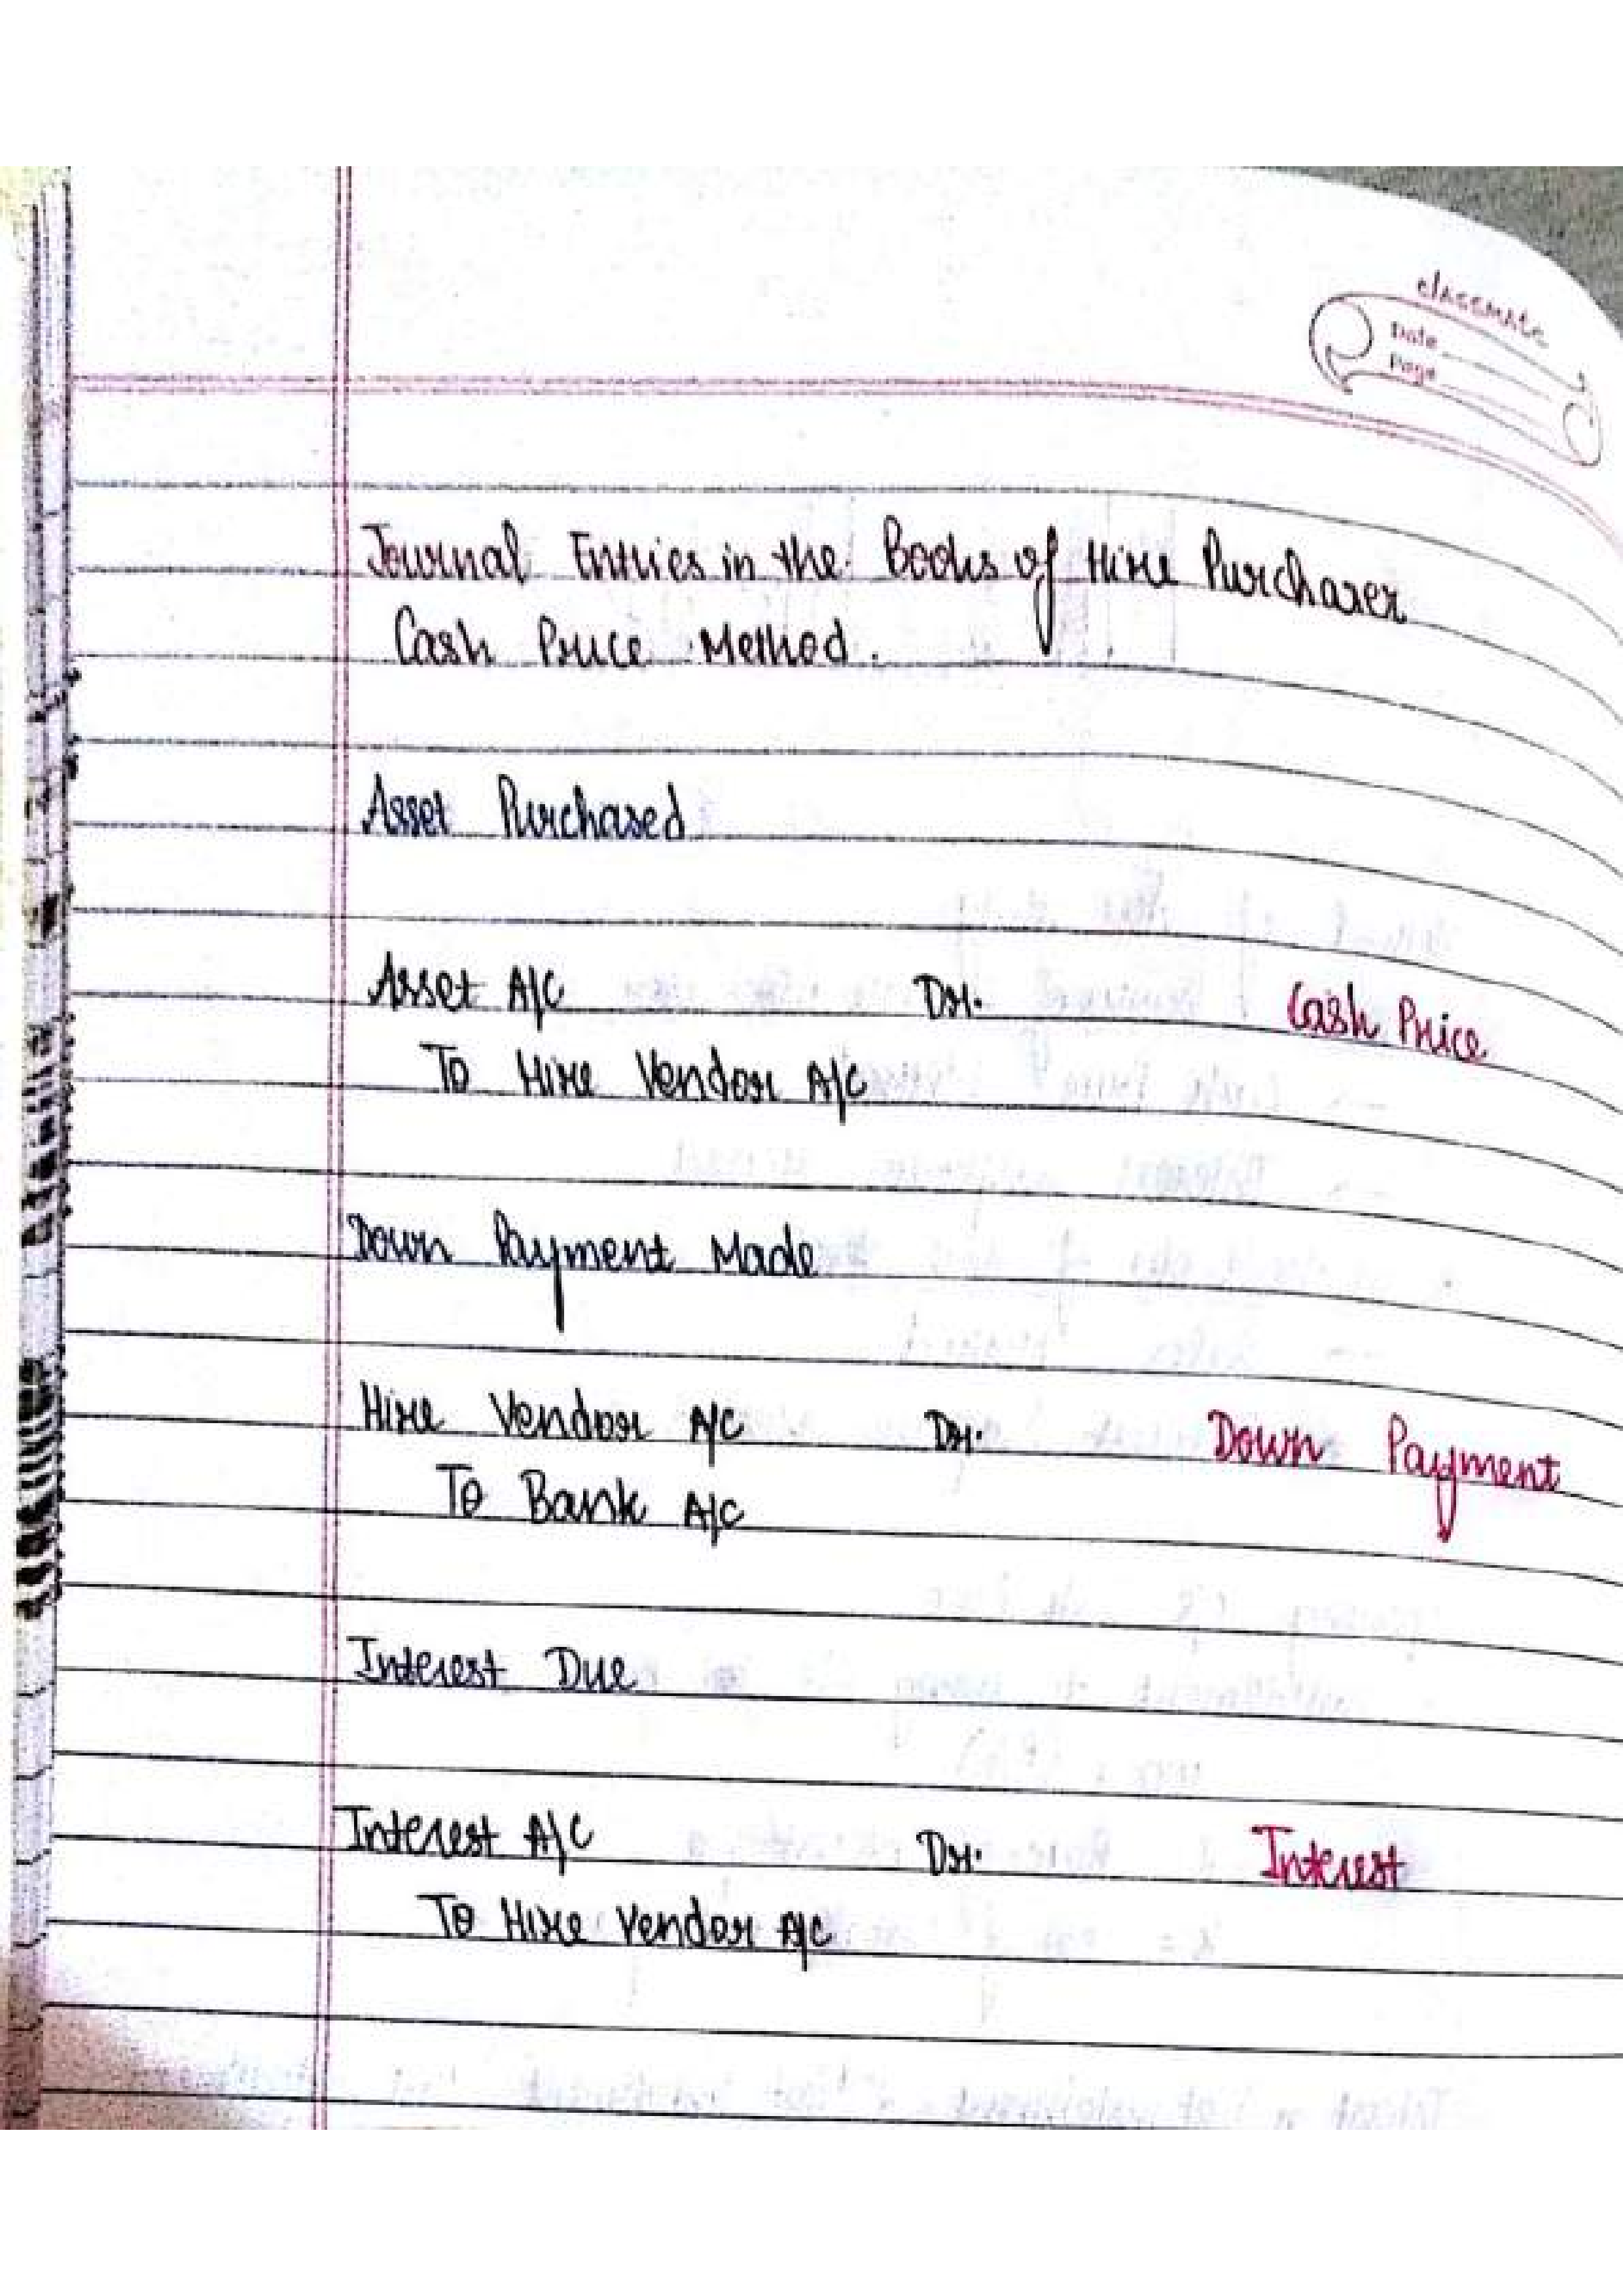 classmate
Date
Page
Journal Entries in the Books of Hire Purchaser
Cash Price Method.
Asset Purchased
Asset A/c Dr. Cash Price
To Hire Vendor A/c
Down Payment Made
Hire Vendor A/c Dr. Down Payment
To Bank A/c
Interest Due
Interest A/c Dr. Interest
To Hire Vendor A/c